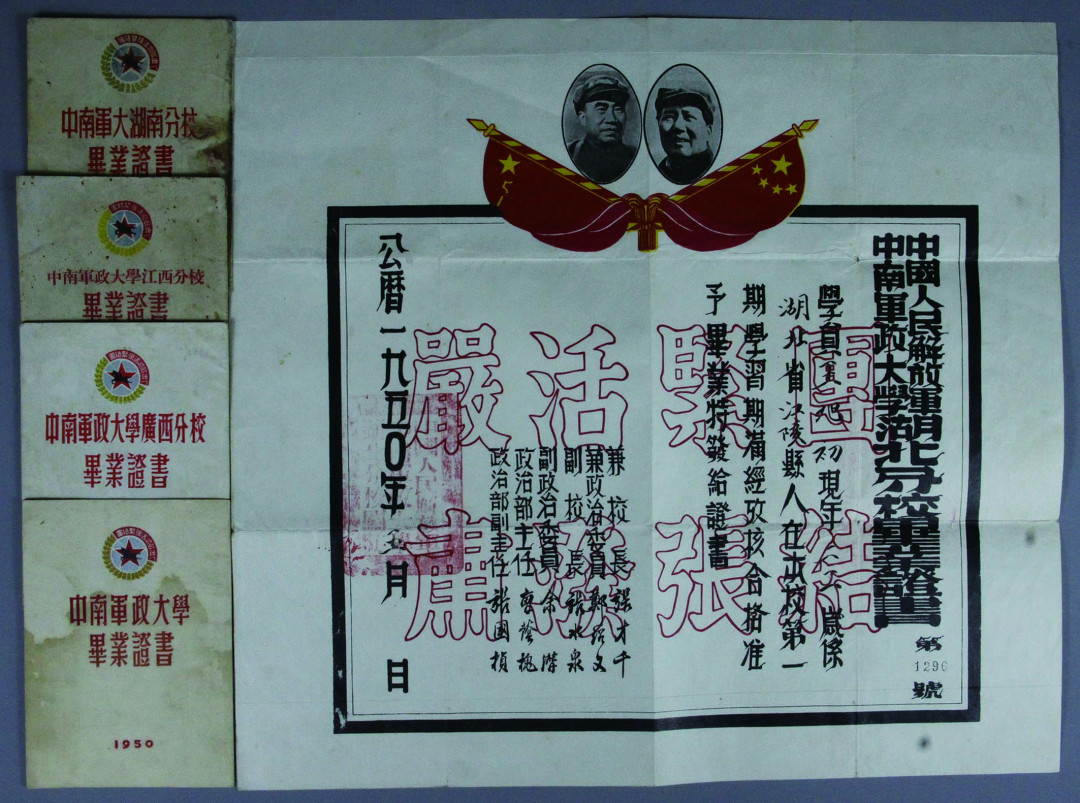 中南軍大湖南分校
畢業證書
中南軍政大學江西分校
畢業證書
中南軍政大學廣西分校
畢業證書
中南軍政大學
畢業證書
1950
中國人民解放軍
中南軍政大學湖北分校畢業證書
第1296號
學員夏旭初現年歲係
湖北省江陵縣人在本校第一
期學習期滿經攷核合格准
予畢業特發給證書
兼校長張才千
兼政治委員鄭紹文
副校長張水泉
副政治委員余
政治部主任
政治部副主任張國楨
公曆一九五〇年月日
團結
緊張
活潑
嚴肅